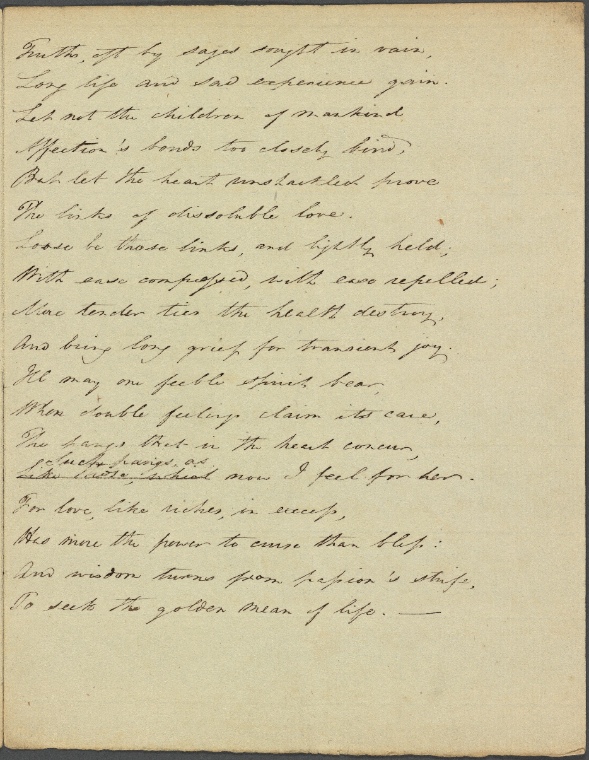 Truths, oft by sages sought in vain,
Long life and sad experience gain.
Let not the children of mankind,
Affection's bonds too closely bind,
But let the heart unshackled prove
The links of dissoluble love.
Loose be those links, and lightly held;
With ease compressed, with ease repelled;
More tender ties the health destroy,
And bring long grief for transient joy.
Ill may one feeble spirit bear,
When double feelings claim its care,
The pangs that in the heart concur,
Such pangs, as
Like those, which now I feel for her.
For love, like riches, in excess,
Has more the power to curse than bless:
And wisdom turns from passion's strife,
To seek the golden mean of life. —